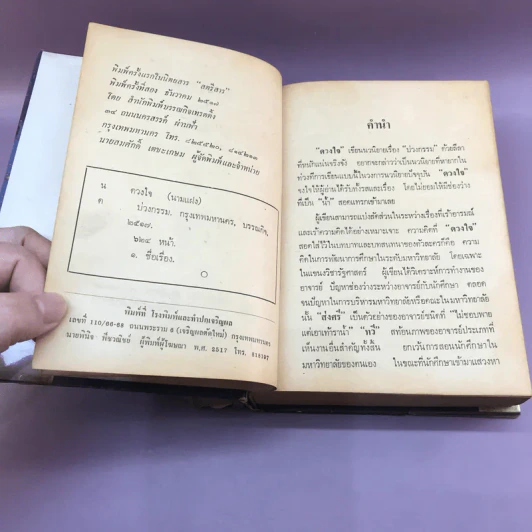 พิมพ์ครั้งแรกในนิตยสาร "สตรีสาร"
พิมพ์ครั้งที่สอง ธันวาคม ๒๕๑๗
โดย สำนักพิมพ์บรรณกิจเทรดดิ้ง
๓๔ ถนนนครสวรรค์ ผ่านฟ้า
กรุงเทพมหานคร โทร.
นายสมศักดิ์ เตชะเกษม ผู้จัดพิมพ์และจำหน่าย
น ดวงใจ (นามแฝง)
ด บ่วงกรรม. กรุงเทพมหานคร, บรรณกิจ,
๒๕๑๗.
๖๒๔ หน้า.
๑. ชื่อเรื่อง.
พิมพ์ที่ โรงพิมพ์และทำปกเจริญผล
เลขที่ 110/66-68 ถนนพระราม 6 (เจริญผลตัดใหม่) กรุงเทพมหานคร
นายพินิจ พืชวณิชย์ ผู้พิมพ์ผู้โฆษณา พ.ศ. 2517 โทร.
คำนำ
"ดวงใจ" เขียนนวนิยายเรื่อง "บ่วงกรรม" ด้วยลีลา
ที่หนักแน่นจริงจัง อยากจะกล่าวว่าเป็นนวนิยายที่หายากใน
ห้วงที่การเขียนแบบนี้ในวงการนวนิยายปัจจุบัน "ดวงใจ"
จงใจให้ผู้อ่านได้รับทั้งรสและเรื่อง โดยไม่ยอมให้มีช่องว่าง
ที่เป็น "น้ำ" สอดแทรกเข้ามาเลย
ผู้เขียนสามารถแบ่งสัดส่วนในระหว่างเรื่องที่เร้าอารมณ์
และเร้าความคิดได้อย่างเหมาะเจาะ ความคิดที่ "ดวงใจ"
สอดใส่ไว้ในบทบาทและบทสนทนาของตัวละครก็คือ ความ
คิดในการพัฒนาการศึกษาในระดับมหาวิทยาลัย โดยเฉพาะ
ในแขนงวิชารัฐศาสตร์ ผู้เขียนได้วิเคราะห์การทำงานของ
อาจารย์ ปัญหาช่องว่างระหว่างอาจารย์กับนักศึกษา ตลอด
จนปัญหาในการบริหารมหาวิทยาลัยหรือคณะในมหาวิทยาลัย
นั้น "ส่งศรี" เป็นตัวอย่างของอาจารย์ชนิดที่ "ไม่ชอบพาย
แต่เอาเท้าราน้ำ" "ทวี" สะท้อนภาพของอาจารย์ประเภทที่
เห็นงานอื่นสำคัญทั้งสิ้น ยกเว้นการสอนนักศึกษาใน
มหาวิทยาลัยของตนเอง ในขณะที่นักศึกษาเข้ามาแสวงหา